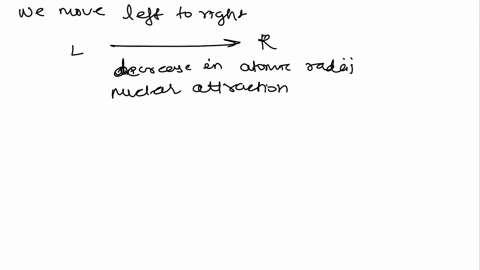 we move left to right
L R
decrease in atomic radii
nuclear attraction